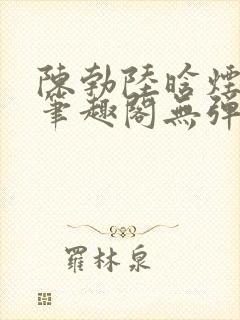 陳勃陸晗煙
筆趣閣無彈
羅林泉